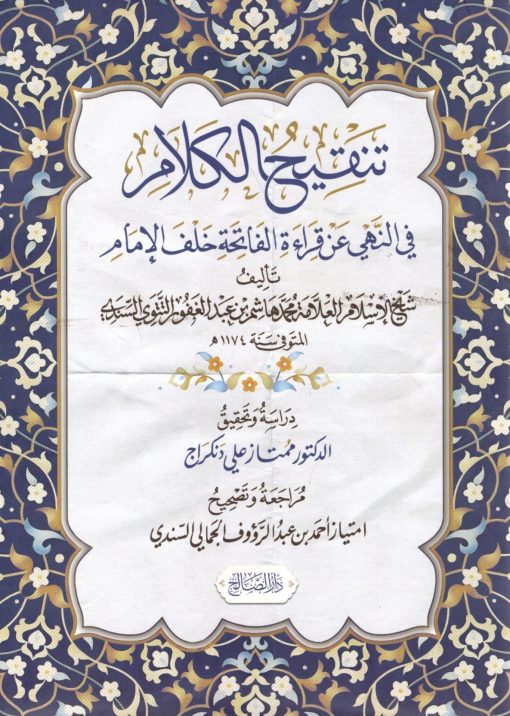 تنقيح الكلام
في النهي عن قراءة الفاتحة خلف الإمام
تأليف
شيخ الإسلام العلامة محمد هاشم بن عبد الغفور التتوي السندي
المتوفى سنة ١١٧٤ هـ
دِرَاسَةُ وَتحقِيقُ
الدكتور ممتاز علي دنكراج
مُرَاجَعَةُ وَتَصْحِيحُ
امتياز أحمد بن عبد الرؤوف الجمالي السندي
دار الصالح